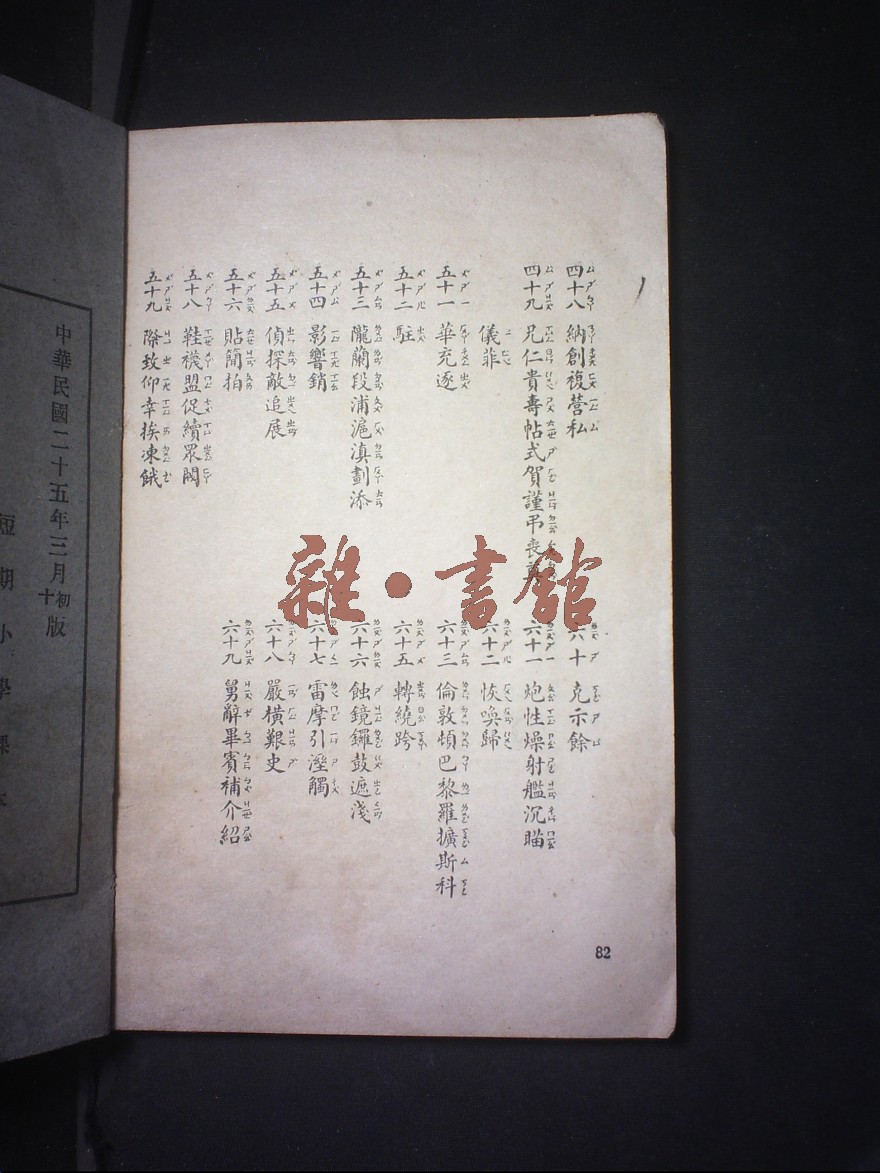 四十八 納創複營私
四十九 兄仁貴壽帖式賀謹弔喪奠
儀菲
五十一 華充逐
五十二 駐
五十三 隴蘭段浦滬滇劃添
五十四 影響銷
五十五 偵探敵追展
五十六 貼簡拍
五十八 鞋襪盟促續眾閥
五十九 際致仰幸挨凍餓
六十 克示餘
六十一 炮性燥射艦沉瞄
六十二 恢喚歸
六十三 倫敦頓巴黎羅擴斯科
六十五 轉繞跨
六十六 蝕鏡鑼鼓遮淺
六十七 雷摩引溼觸
六十八 嚴橫艱史
六十九 舅辭畢賓補介紹
82
中華民國二十五年三月初十版
短期小學課本
雜·書館